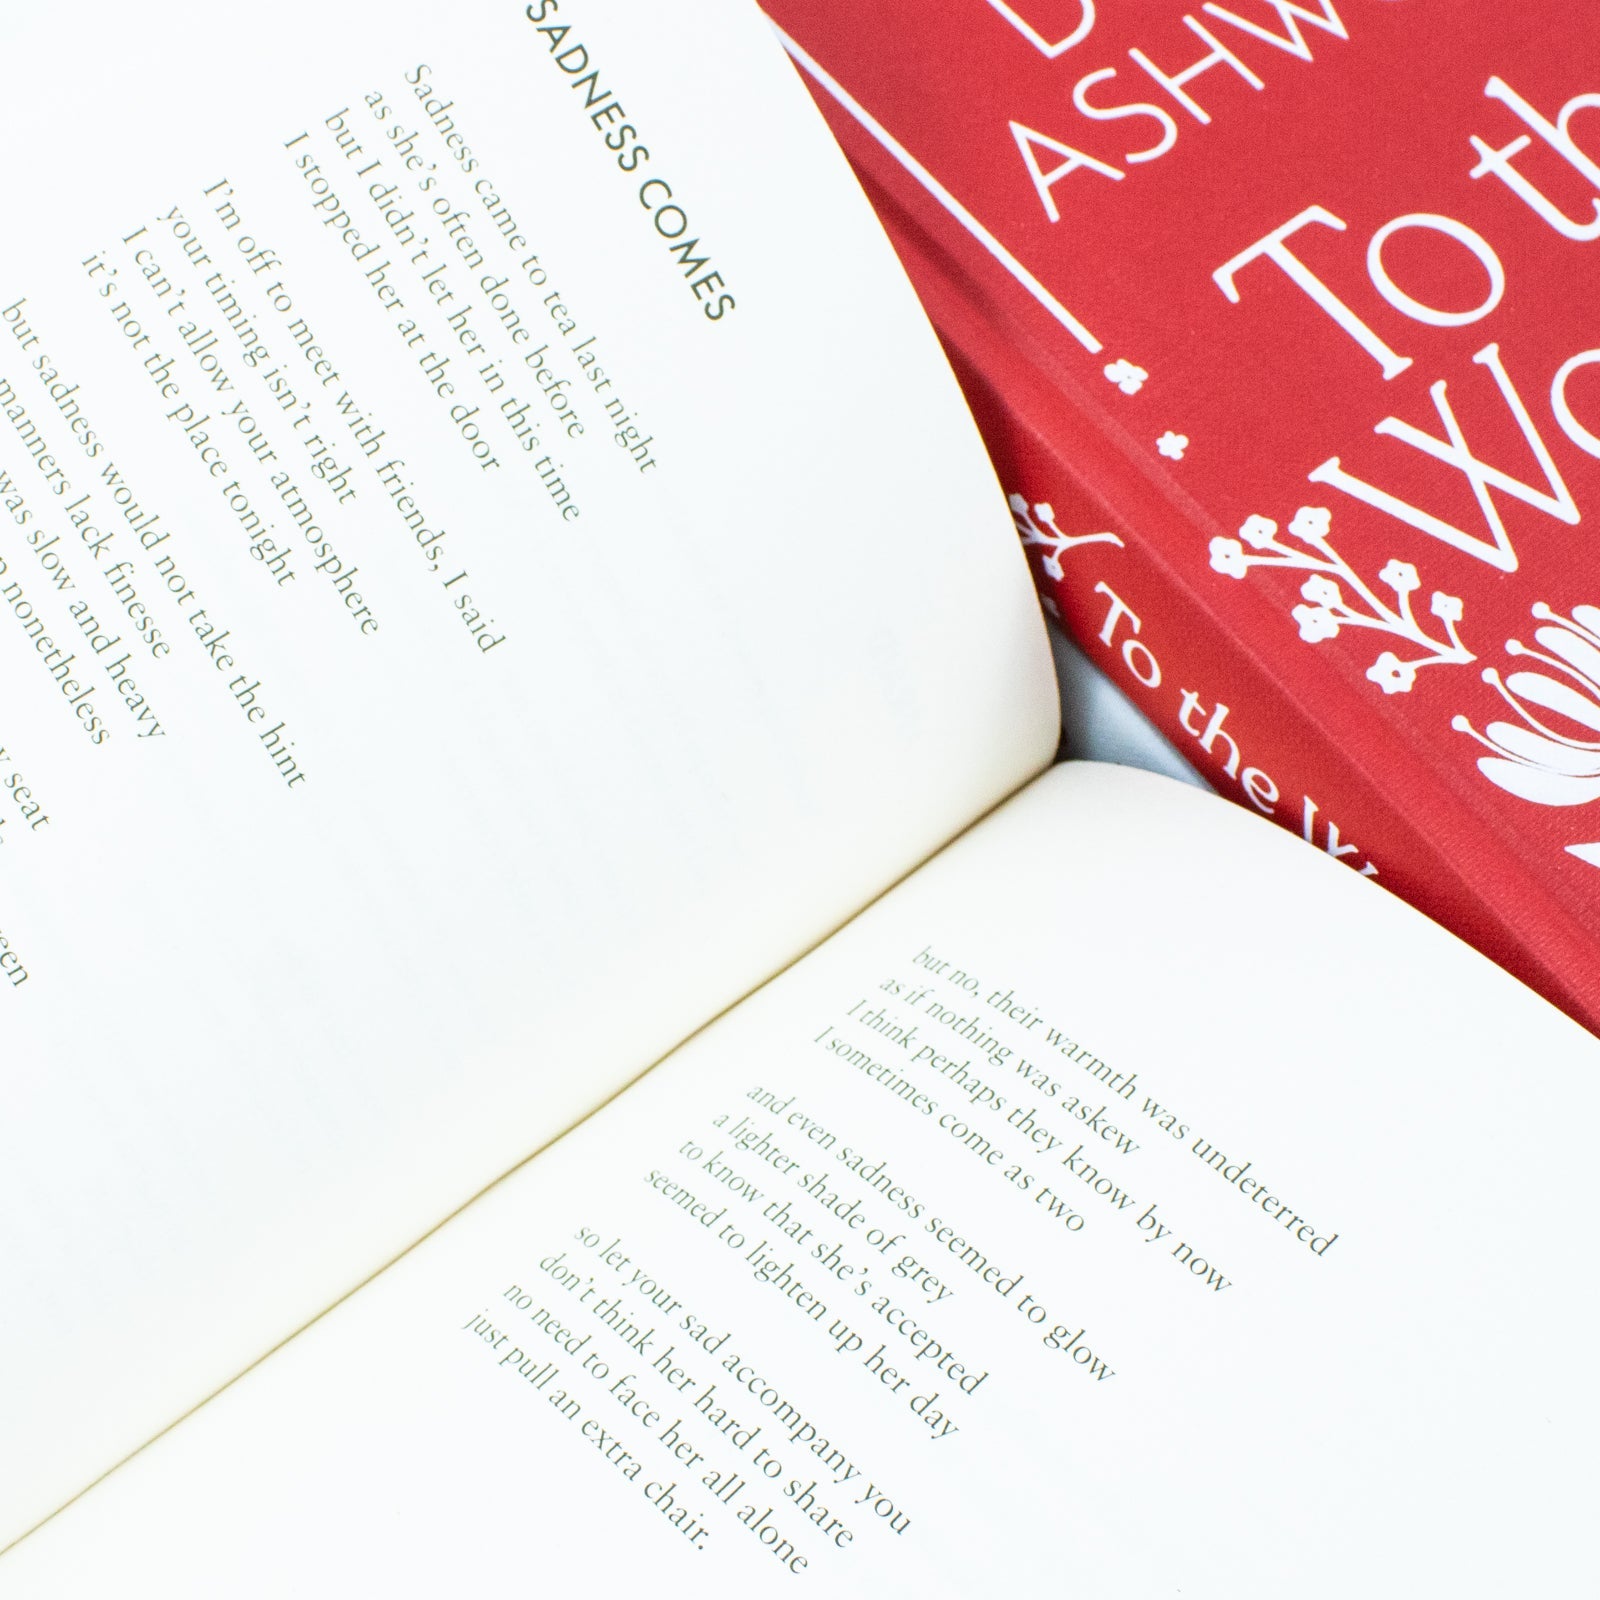 SADNESS COMES
Sadness came to tea last night
as she's often done before
but I didn't let her in this time
I stopped her at the door
I'm off to meet with friends, I said
your timing isn't right
I can't allow your atmosphere
it's not the place tonight
but sadness would not take the hint
manners lack finesse
was slow and heavy
nonetheless
seat
but no, their warmth was undeterred
as if nothing was askew
I think perhaps they know by now
I sometimes come as two
and even sadness seemed to glow
a lighter shade of grey
to know that she's accepted
seemed to lighten up her day
so let your sad accompany you
don't think her hard to share
no need to face her all alone
just pull an extra chair.
To
To the